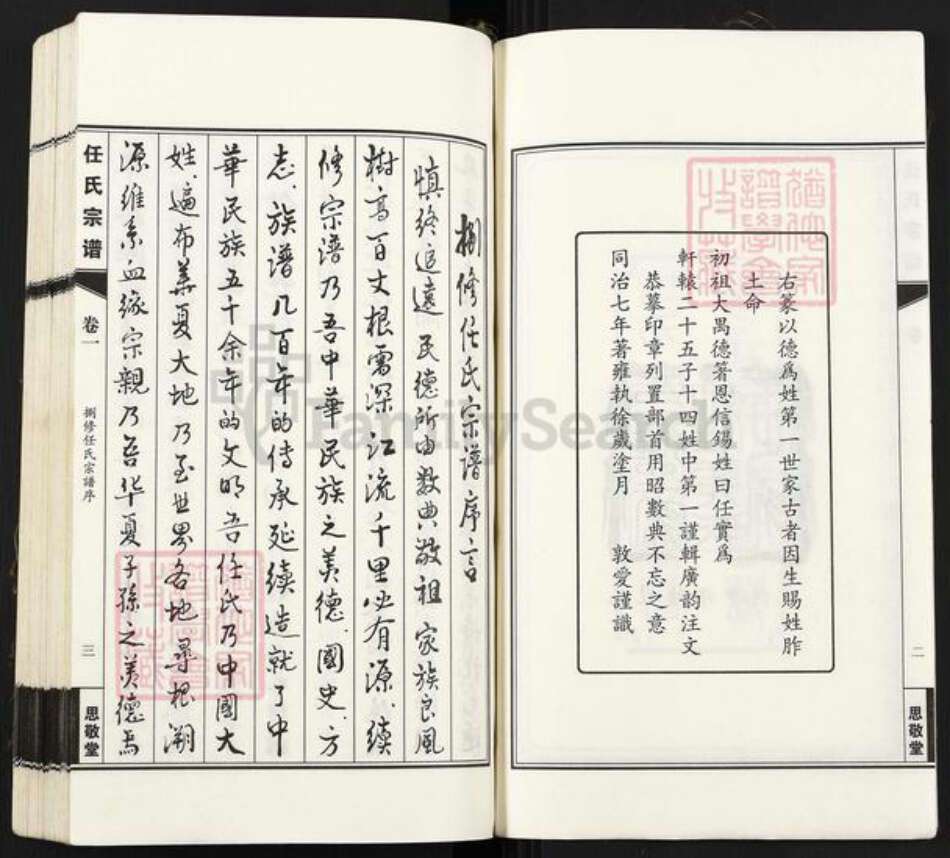 右篆以德爲姓第一世家古者因生賜姓胙
土命
初祖大禹德箸恩信錫姓曰任實爲
軒轅二十五子十四姓中第一謹輯廣韵注文
恭摹印章列置部首用昭數典不忘之意
同治七年著雍執徐歲塗月 敦愛謹識
二
思敬堂
捌修任氏宗譜序言
慎终追遠 民德所由数典敬祖 家族良風
樹高百丈根需深 江流千里必有源 續
修宗谱乃吾中華民族之美德 國史、方
志、族譜几百年的传承延續造就了中
華民族五千余年的文明吾任氏乃中國大
姓、遍布華夏大地 乃至世界各地尋根溯
源维系血缘宗親乃吾华夏子孫之美德焉
任氏宗谱
卷一
捌修任氏宗譜序
三
思敬堂
FamilySearch